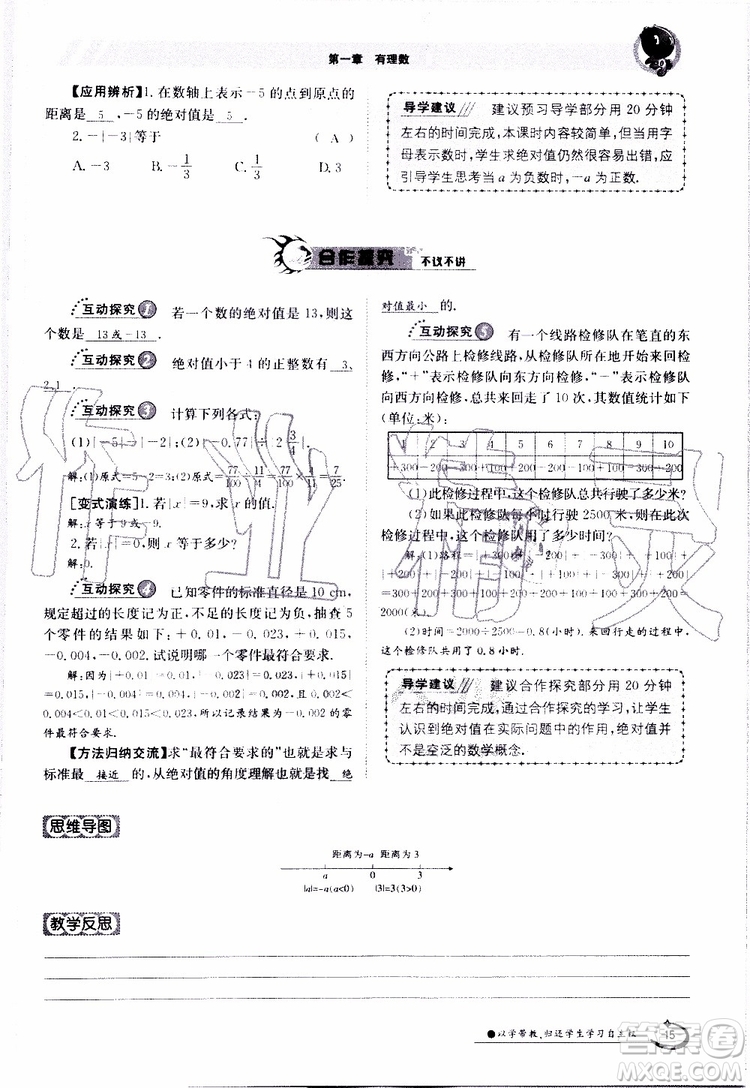 第一章 有理数
【应用辨析】1.在数轴上表示-5的点到原点的
距离是 5 ,-5的绝对值是 5 .
2.-|-3|等于 ( A )
A.-3 B.-1/3 C.1/3 D.3
导学建议 建议预习导学部分用20分钟
左右的时间完成,本课时内容较简单,但当用字
母表示数时,学生求绝对值仍然很容易出错,应
引导学生思考当a为负数时,-a为正数.
合作探究 不议不讲
互动探究1 若一个数的绝对值是13,则这
个数是 13或-13 .
互动探究2 绝对值小于4的正整数有 3、
2、1 .
互动探究3 计算下列各式:
(1)|-5|-|-2|;(2)|-0.77|÷|-2 3/4|.
解:(1)原式=5-2=3;(2)原式=77/100×4/11=7/25
[变式演练]1.若|x|=9,求x的值.
解:x等于9或-9.
2.若|x|=0,则x等于多少?
解:0.
互动探究4 已知零件的标准直径是10 cm,
规定超过的长度记为正,不足的长度记为负,抽查5
个零件的结果如下:+0.01,-0.002,-0.015,
-0.004,-0.002.试说明哪一个零件最符合要求.
解:因为|+0.01|=0.01,|-0.002|=0.002,|-0.015|
=0.015,|-0.004|=0.004,|-0.002|=0.002,且0.002<0.004<0.01
<0.015,所以记录结果为-0.002的零件
最符合要求.
【方法归纳交流】求“最符合要求的”就是求与
标准最 接近 的,从绝对值的角度理解就是找 绝
对值最小 的.
互动探究5 有一个线路检修队在笔直的东
西方向公路上检修线路,从检修队所在位置开始检
修,“+”表示检修队向东方向检修,“-”表示检修队
向西方向检修,一共来回走了10次,其数值统计如下
(单位:米):
1 2 3 4 5 6 7 8 9 10
+300 -200
(1)此检修过程中,这个检修队总共行驶了多少米?
(2)如果检修队每个小时行驶2500米,则在此次
检修过程中,这个检修队用了多少时间?
解:(1)路程=|+300|
2000(米).
(2)时间=2000÷2500=0.8(小时).来回行走的过程中,
这个检修队用了0.8小时.
导学建议 建议合作探究部分用20分钟
左右的时间完成,通过合作探究的学习,让学生
认识到绝对值在实际问题中的作用,绝对值并
不是空泛的数学概念.
思维导图
距离为-a 距离为3
a 0 3
|a|=-a(a<0) |3|=3(3>0)
教学反思
●以学带教,归还学生学习自主权
15
作业精灵
MXQE.COM